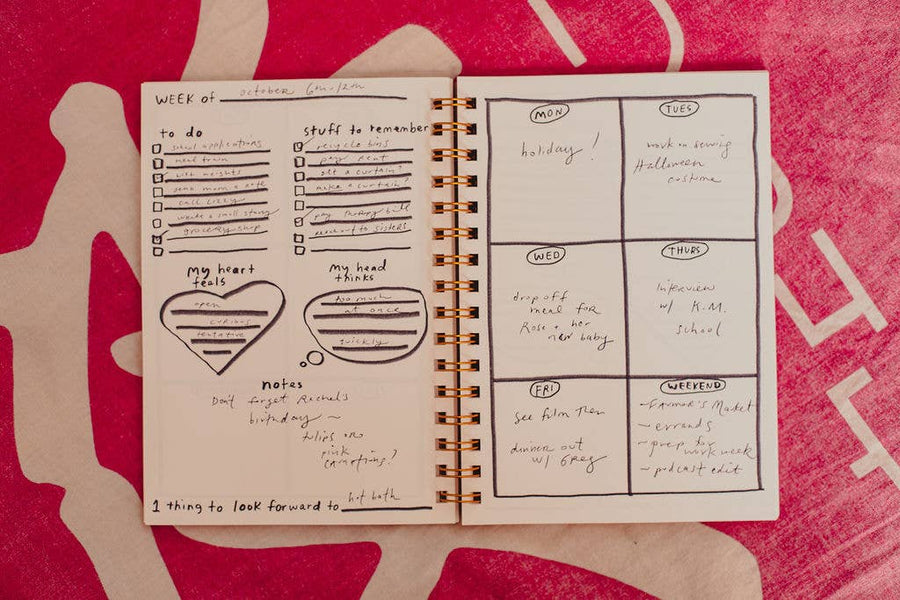 WEEK of October 6th-12th
to do
school applications
meal train
lift weights
send mom a note
call Lizzy
write a small story
grocery shop
stuff to remember
recycle bins
pay rent
get a curtain?
make a curtain?
pay therapy bill
reach out to sisters
my heart
feels
open
curious
tentative
my head
thinks
too much
at once
quickly
notes
Don't forget Rachel's
birthday ~
tulips or
pink
carnations?
1 thing to look forward to hot bath
MON
holiday!
TUES
work on sewing
Halloween
costume
WED
drop off
meal for
Rose + her
new baby
THURS
Interview
w/ K.M.
school
FRI
see film then
dinner out
w/ GREG
WEEKEND
~FARMOR'S Market
~ errands
~ prep for
work week
~ podcast edit